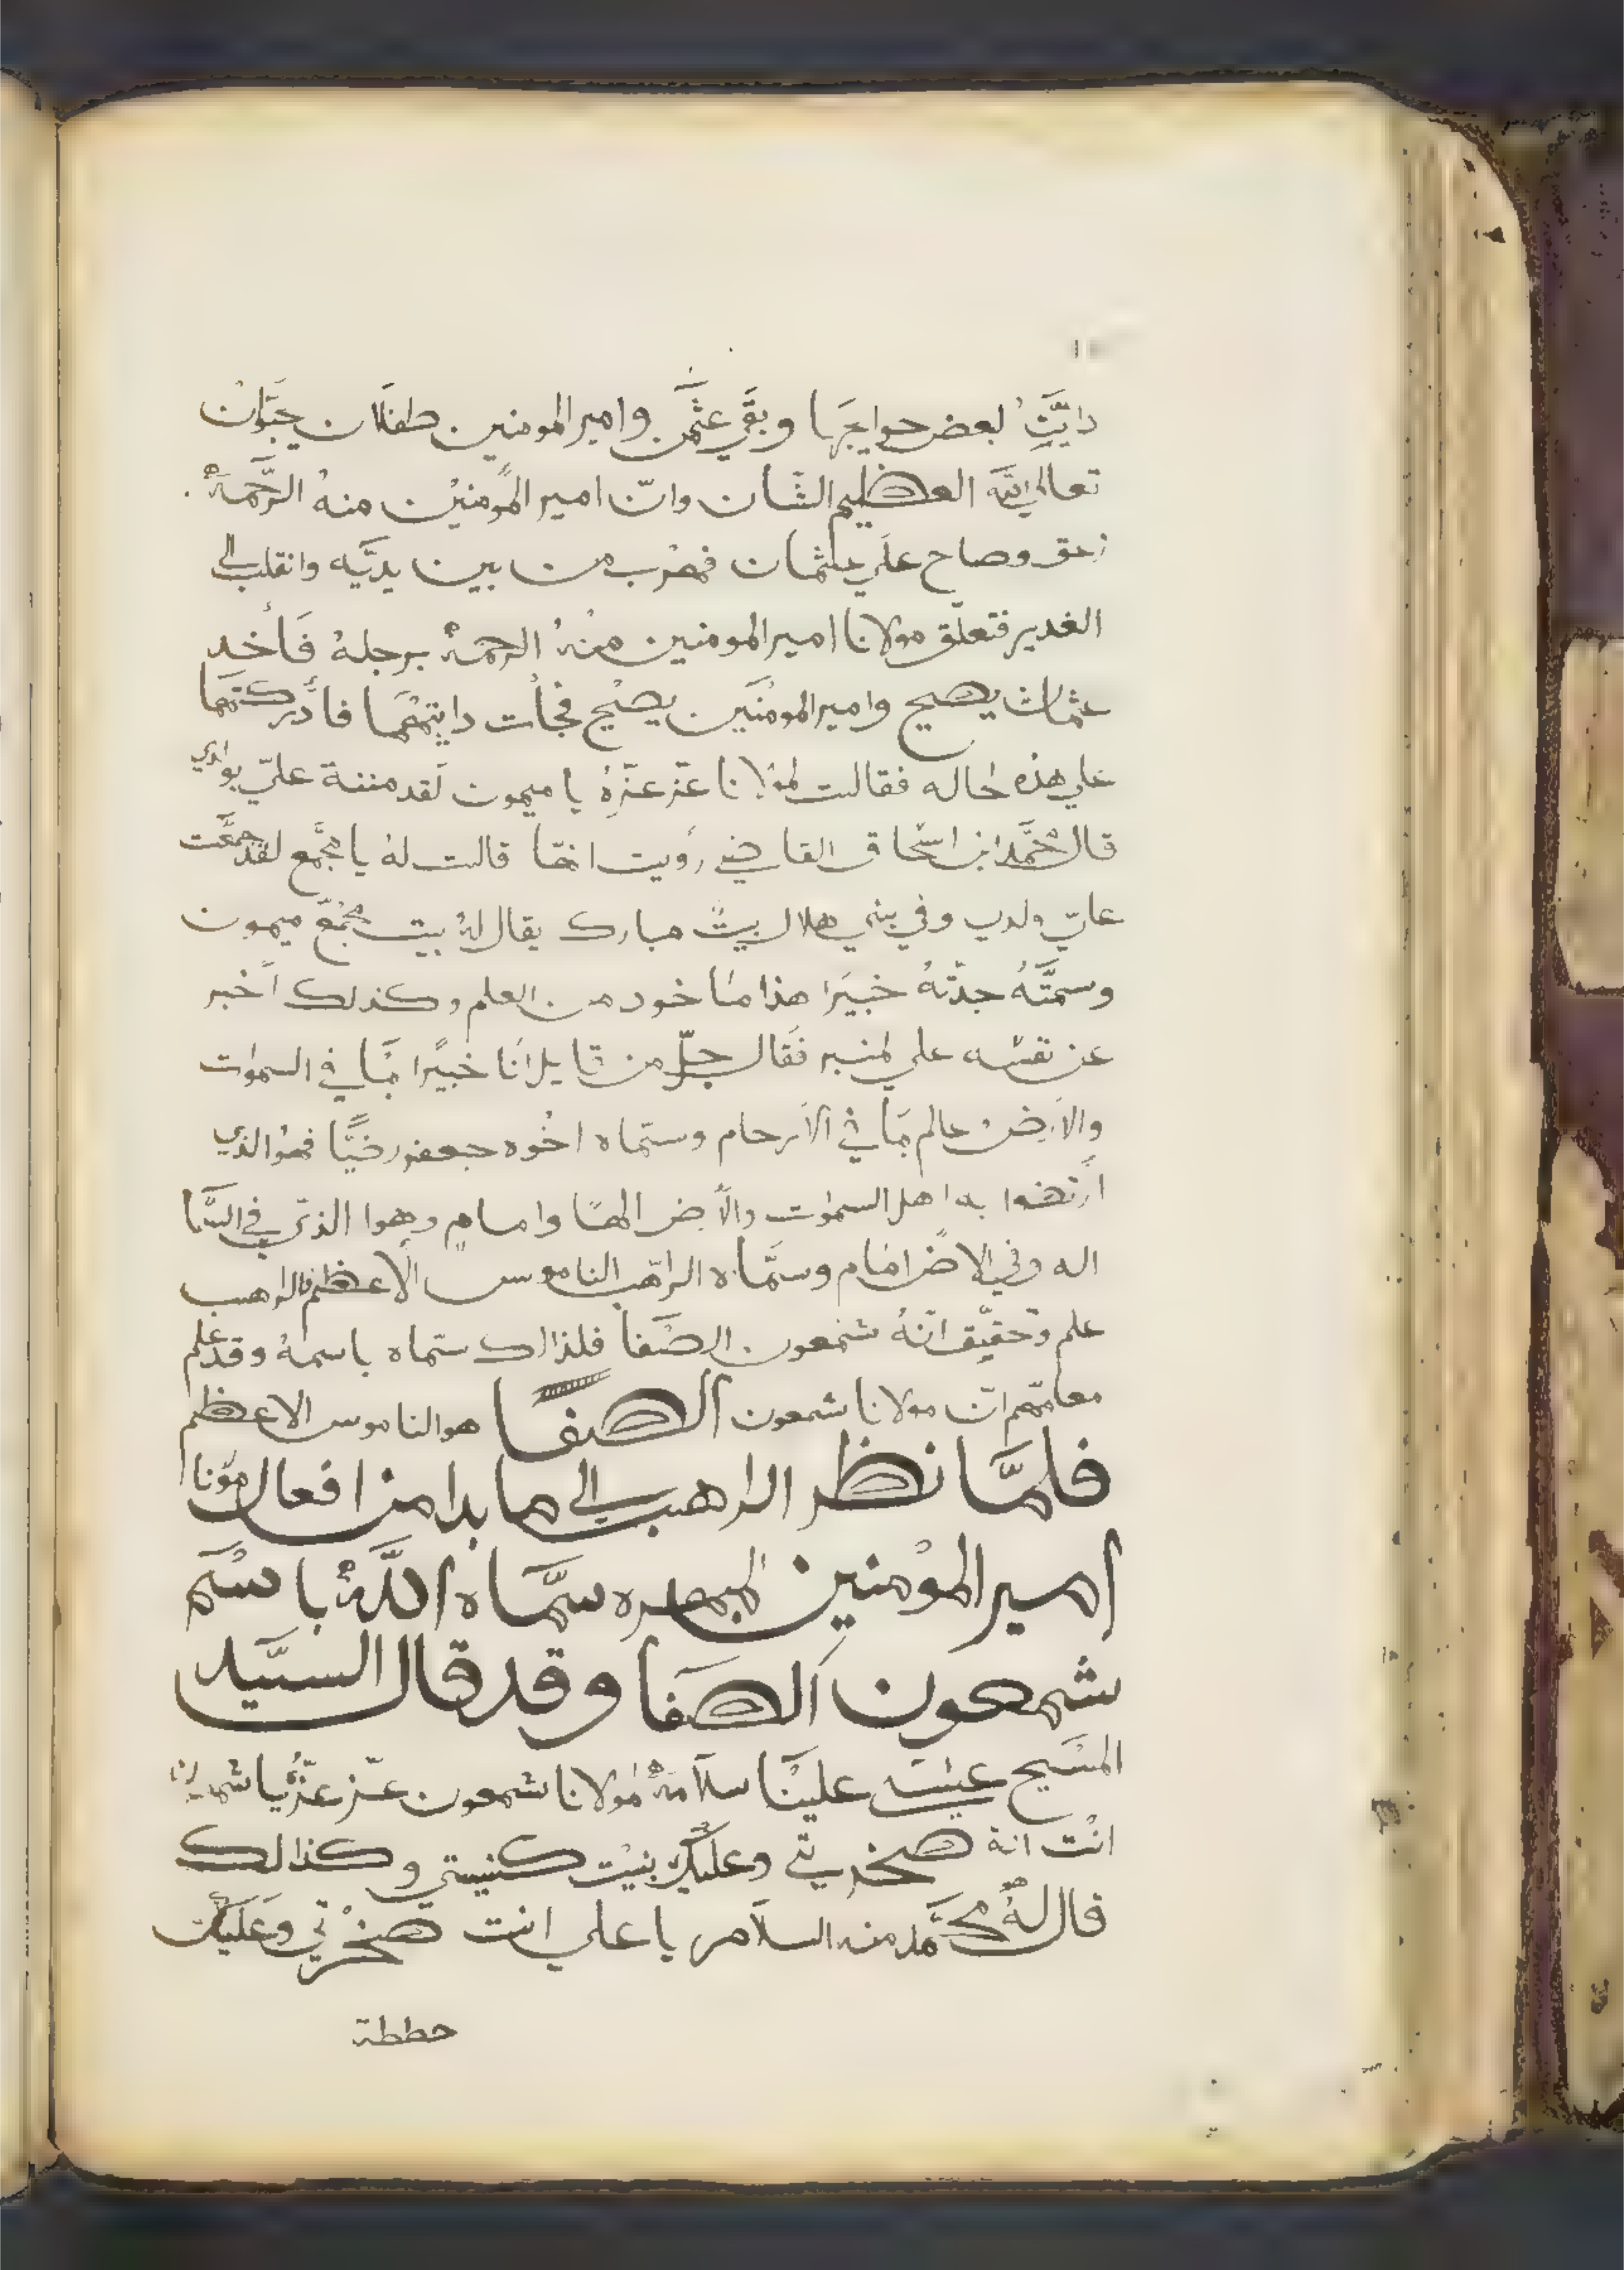 دايَّتِ لبعض حوايجها وبقي عثمن وامير المومنين طفلان يحبوان
تعالي الله العظيم الشان وانّ امير المؤمنين منهُ الرَّحمةُ
زعق وصاح علي عثمان فهرب من بين يديَّه وانقلب الي
الغدير فتعلّق مولانا امير المومنين منهُ الرحمةُ برجلهُ فأخد
عثمان يصيح وامير المومنين يصيح فجأت دايتهما فأدركتهما
علي هذه الحاله فقالت لمولانا عزّ عزّهُ يا ميمون لقد مننة عليّ بوالدي
قال محمّد ابن اسحاق القاضي رويت انها قالت لهُ يا مجمع لقد جمعت
علي ولدي وفي بني هلال بيتٌ مبارك يقال لهُ بيت مجمع ميمون
وسمَّتَهُ جدّتهُ خبيرا هذا ماخود من العلم وكذلك اخبر
عن نفسه علي المنبر فقال جلّ من قايل انا خبيرًا بما في السموات
والارض عالم بما في الارحام وسمّاه اخُوه جعفر رضيًّا فهوا الذي
ارتضوا به اهل السموات والارض الهًا وامامٍ وهوا الذي في السَّما
اله وفي الارض امام وسمَّاه الراهب الناموس الاعظم فالراهب
علم وتحقيّق انّهُ شمعون الصَفا فلذالك سمّاه باسمهُ وقد علم
معلمّهم انّ مولانا شمعون الصفا هو الناموس الاعظم
فلمَّا نظر الراهب الي ما بدا من افعال مولانا
امير المؤمنين المبهره سمَّاه اللهُ باسم
شمعون الصَفا وقد قال السيّد
المسَيح علينَا سلامهُ لمولانا شمعون عزّ عزّهُ يا شمعون
انت انة صخرتي وعليك بنيت كنيستي وكذالك
قال لهُ محمّد منه السلام يا علي انت صخرتي وعليك
حططة